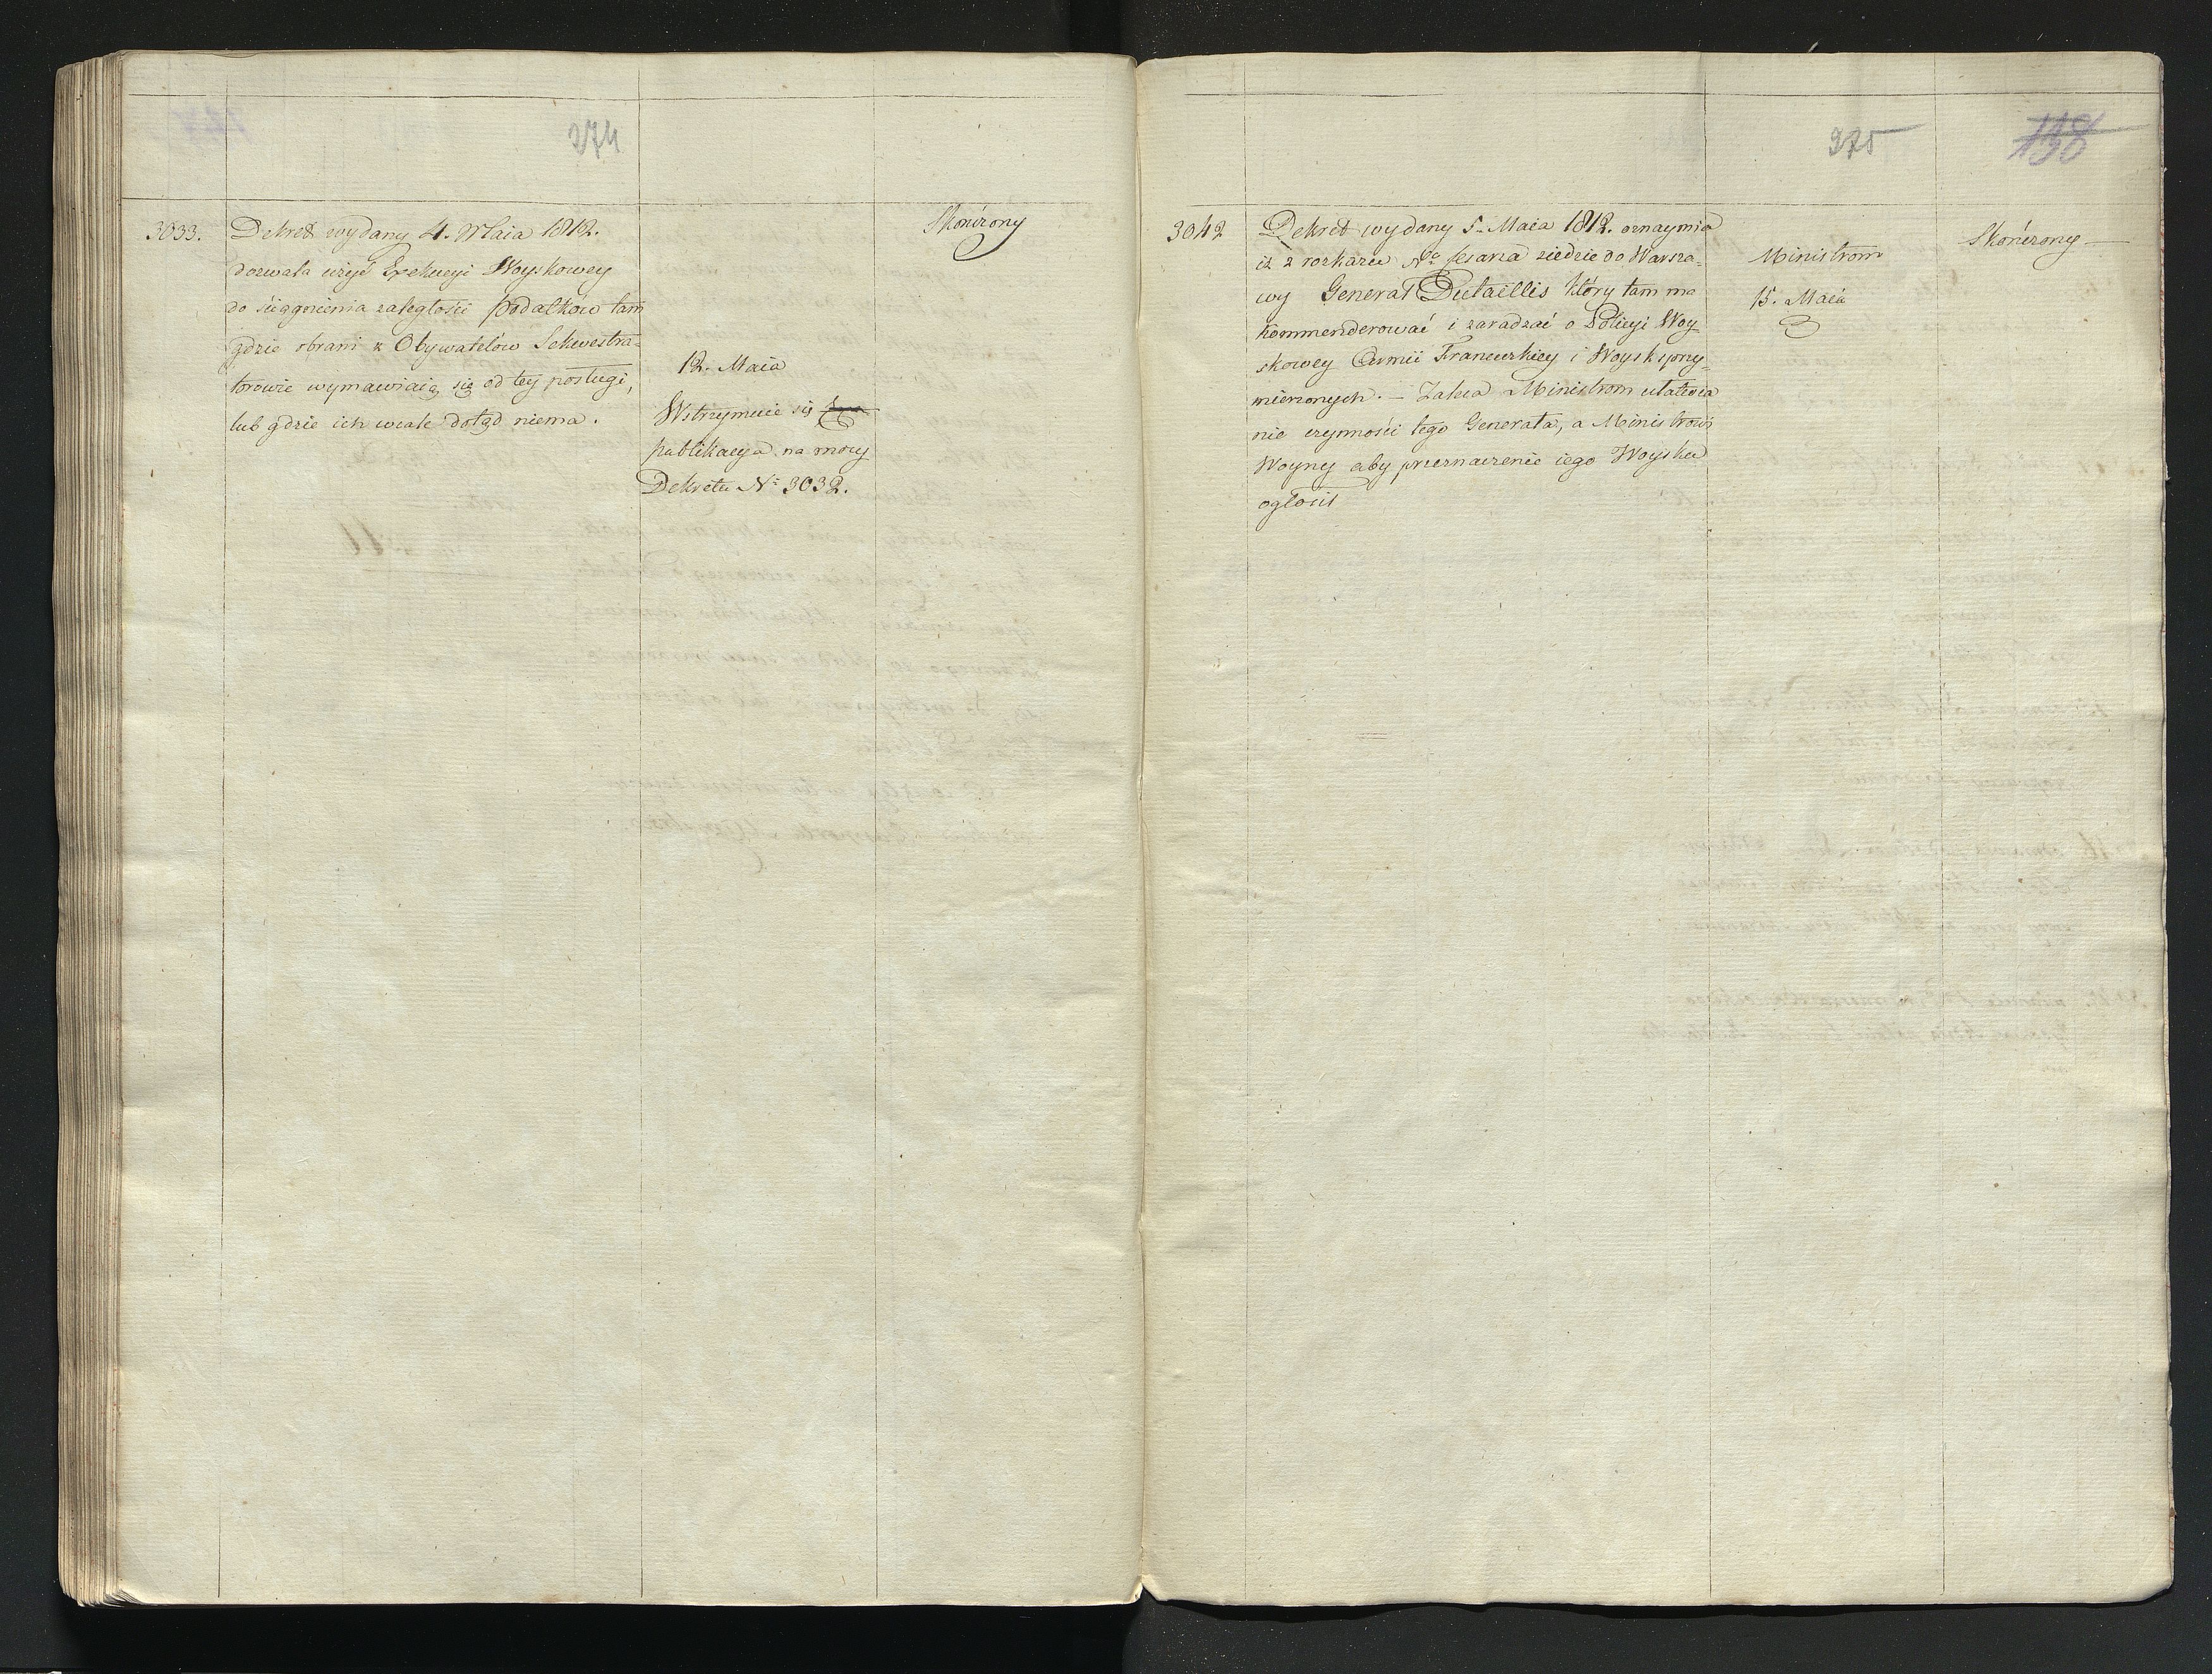 274
3033.
Dekret wydany 4. Maia 1812.
dozwala użyć Exekucyi Woyskowey
do ściągnienia zaległości podatków tam
gdzie obrani z Obywatelów Sekwestra-
torowie wymawiaią się od tey posługi,
lub gdzie ich wcale dotąd niema.
12. Maia
Wstrzymuie się
publikacya na mocy
Dekretu Nr. 3032.
Skończony
275
3042
Dekret wydany 5. Maia 1812. oznaymia
iż z rozkazu Ngo Cesarza ziedzie do Warsza-
wy Generał Dutaillis który tam ma
kommenderować i zaradzać o Policyi Woy
skowey Armii Francuzkiey i Woysk sprzy-
mierzonych. – Zaleca Ministrom ułatwia
nie czynności tego Generała, a Ministrowi
Woyny aby przeznaczenie iego Woysku
ogłosił
Ministrom
15. Maia
Skończony –